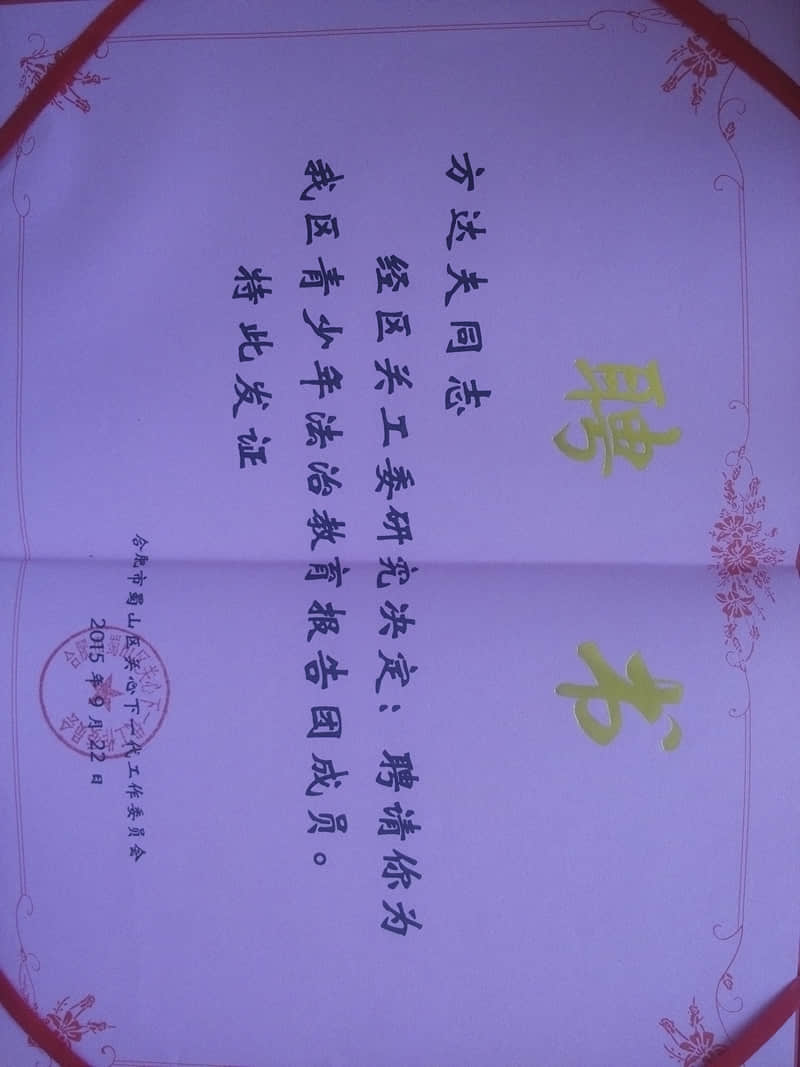 聘书
方达夫同志
经区关工委研究决定：聘请你为
我区青少年法治教育报告团成员。
特此发证
合肥市蜀山区关心下一代工作委员会
2015年9月22日